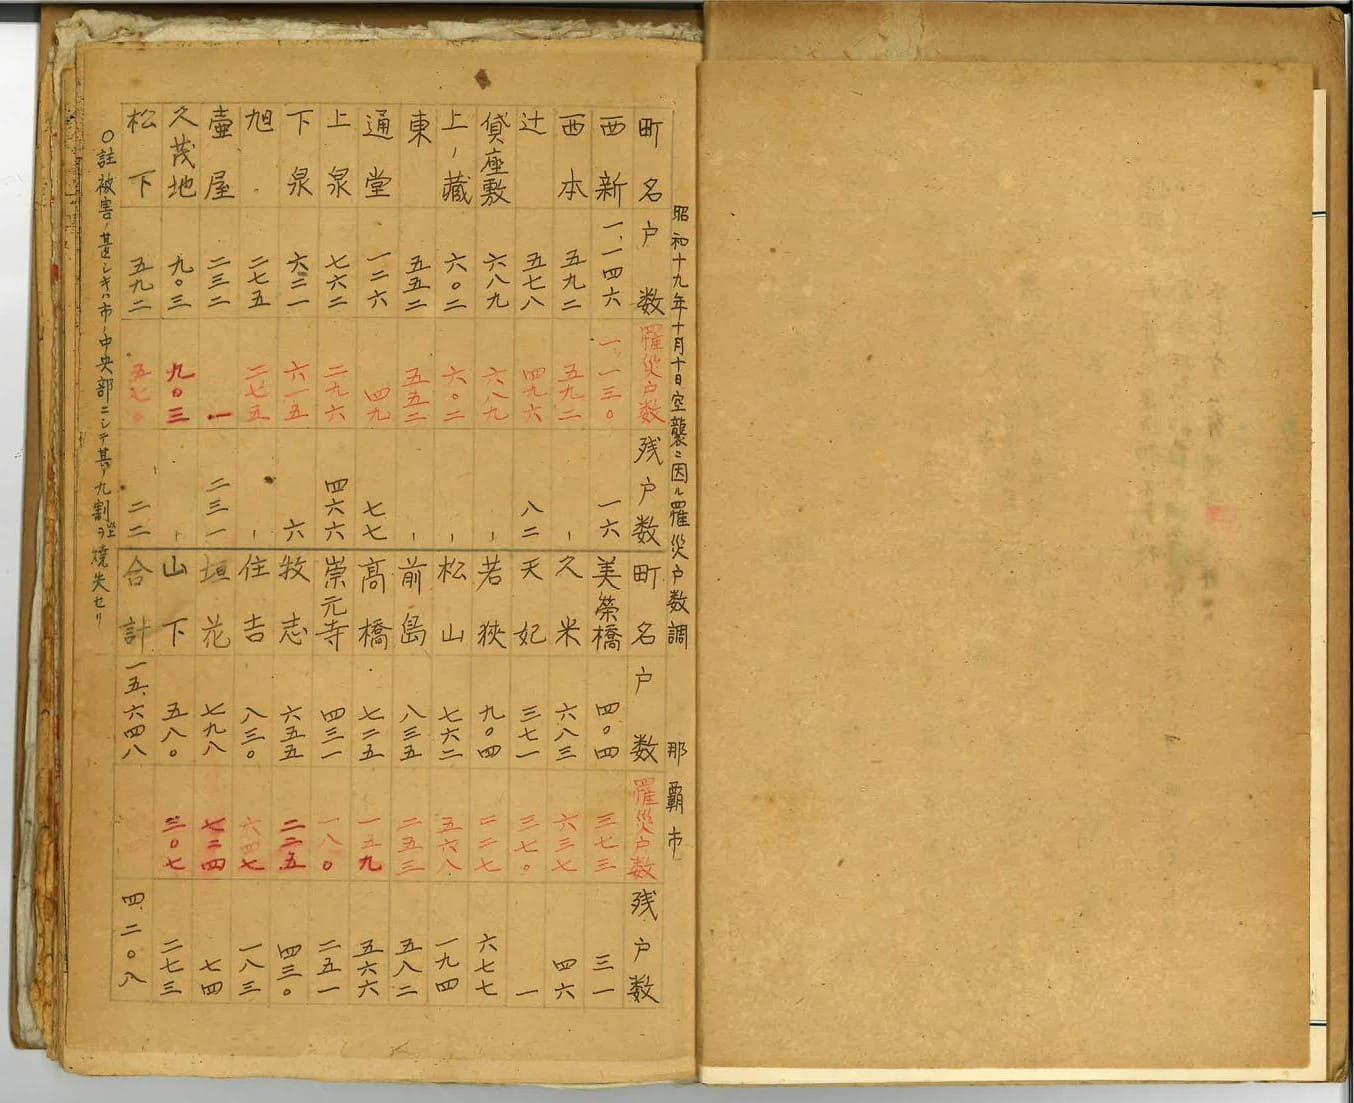 昭和十九年十月十日空襲ニ因ル罹災戸数調 那覇市
町名 戸数 罹災戸数 残戸数
西新 一、一四六 一、一三〇 一六
西本 五九二 五九二 -
辻 五七八 四九六 八二
貸座敷 六八九 六八九 -
上ノ蔵 六〇二 六〇二 -
東 五五二 五五二 -
通堂 一二六 四九 七七
上泉 七六二 二九六 四六六
下泉 六二一 六一五 六
旭 二七五 二七五 -
壷屋 二三二 一 二三一
久茂地 九〇三 九〇三 -
松下 五九二 五七〇 二二
町名 戸数 罹災戸数 残戸数
美榮橋 四〇四 三七三 三一
久米 六八三 六三七 四六
天妃 三七一 三七〇 一
若狹 九〇四 二二七 六七七
松山 七六二 五六八 一九四
前島 八三五 二五三 五八二
高橋 七二五 一五九 五六六
崇元寺 四三一 一八〇 二五一
牧志 六五五 二二五 四三〇
住吉 八三〇 六四七 一八三
垣花 七九八 七二四 七四
山下 五八〇 三〇七 二七三
合計 一五、六四八 四、二〇八
〇註被害ノ甚シキハ市ノ中央部ニシテ其ノ九割以上ヲ焼失セリ